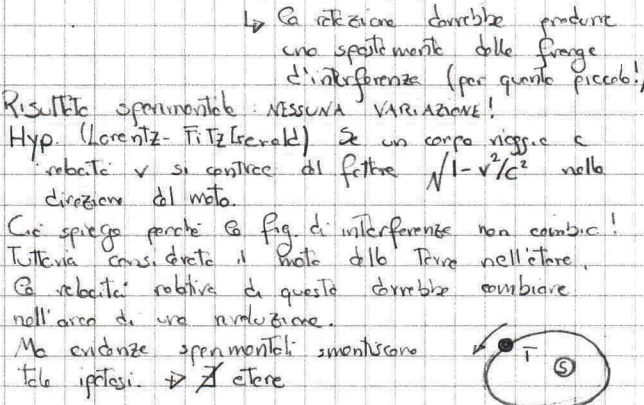 ↳ La rotazione dovrebbe produrre
uno spostamento delle frange
d'interferenza (per quanto piccolo!)
Risultato sperimentale: NESSUNA VARIAZIONE!
Hyp. (Lorentz-Fitzgerald) Se un corpo viaggia a
velocità v si contrae del fattore √1-v²/c² nella
direzione del moto.
Ciò spiega perché la fig. di interferenza non cambia!
Tuttavia considerato il moto della Terra nell'etere,
la velocità relativa di questa dovrebbe cambiare
nell'arco di una rivoluzione.
Ma evidenze sperimentali smentiscono
tale ipotesi. ⇒ ∄ etere
T
S